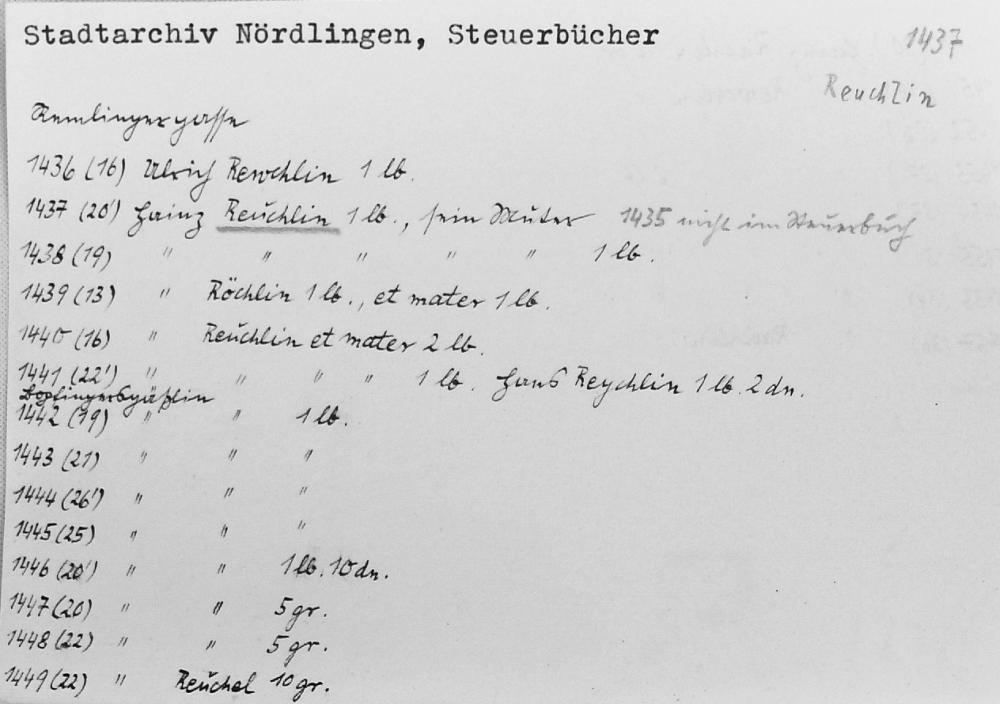 Stadtarchiv Nördlingen, Steuerbücher 1437
Reuchlin
Remlingergasse
1436 (16) Ulrich Rewchlin 1 lb.
1437 (20') Hainz Reüchlin 1 lb., sein Muter 1435 nicht im Steuerbuch
1438 (19) " " " " " 1 lb.
1439 (13) " Röchlin 1 lb., et mater 1 lb.
1440 (16) " Reüchlin et mater 2 lb.
1441 (22') " " " " 1 lb. Hans Reychlin 1 lb. 2 dn.
Bopfingersgäßlin
1442 (19) " " 1 lb.
1443 (21) " " "
1444 (26') " " "
1445 (25) " " "
1446 (20') " " 1 lb. 10 dn.
1447 (20) " " 5 gr.
1448 (22) " " 5 gr.
1449 (22) " Reüchel 10 gr.